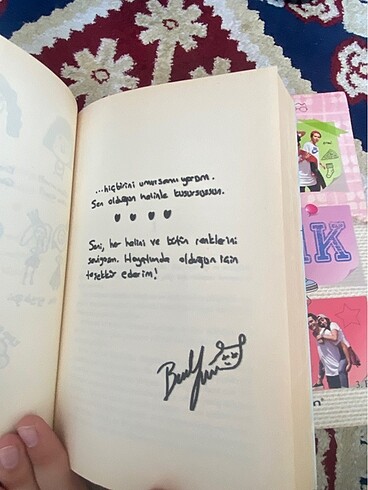 ...hiçbirini umursamıyorum.
Sen olduğun halinle kusursuzsun.
Seni, her halini ve bütün renklerini
seviyorum. Hayatımda olduğun için
teşekkür ederim!
K